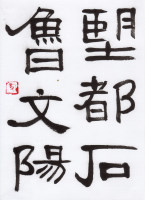 望都石
魯文陽